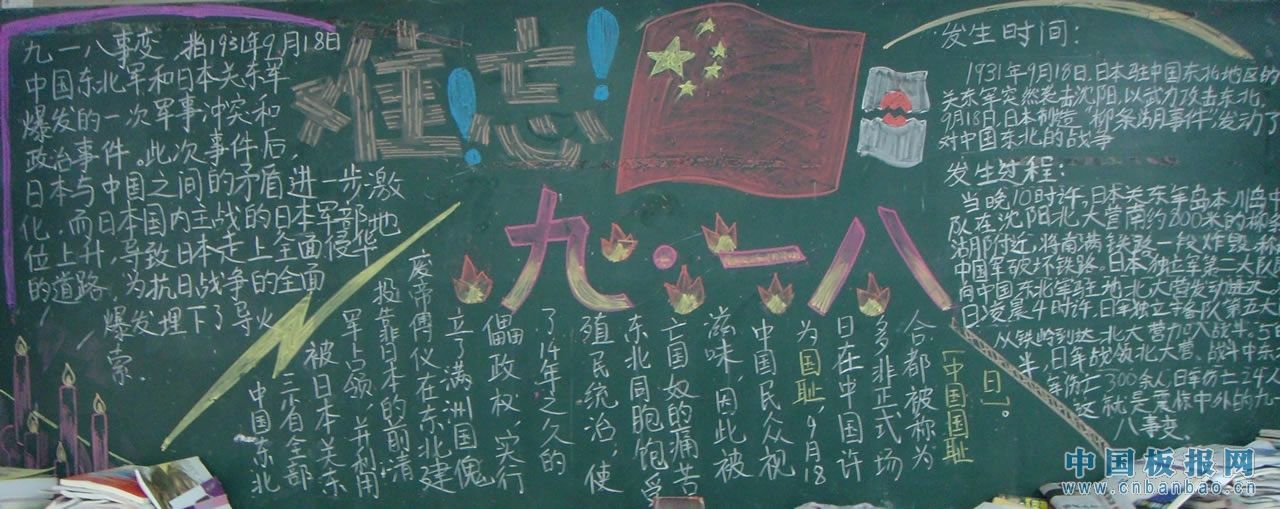 九一八事变 指1931年9月18日
中国东北军和日本关东军
爆发的一次军事冲突和
政治事件。此次事件后,
日本与中国之间的矛盾进一步激
化,而日本国内主战的日本军部地
位上升,导致日本走上全面侵华
的道路,为抗日战争的全面
爆发埋下了导火
索.
九·一八
中国东北
三省全部
被日本关东
军占领,并利用
投靠日本的前清
废帝傅仪在东北建
立了满洲国傀
儡政权,实行
了14年之久的
殖民统治,使
东北同胞饱受
亡国奴的痛苦
滋味,因此被
中国民众视
为国耻,9月18
日在中国许
多多非正式场
合都被称为
“中国国耻
日”。
发生时间:
1931年9月18日.日本驻中国东北地区的
关东军突然袭击沈阳,以武力攻击东北.
9月18日,日本制造“柳条湖事件”发动了
对中国东北的战争
发生过程:
当晚10时许,日本关东军岛本川岛中
队在沈阳北大营南约800米的柳条
湖附近,将南满铁路一段炸毁.称
中国军破坏铁路。日本独立军第二大队
向中国东北军驻地北大营发动进攻.
日凌晨4时许,日军独立守备队第五大
从铁岭到达北大营加入战斗.5
半,日军战领北大营、战斗中东
军伤亡300余人,日军伤亡24人
这就是震惊中外的九一
八事变。
中国板报网
www.cnbanbao.cn